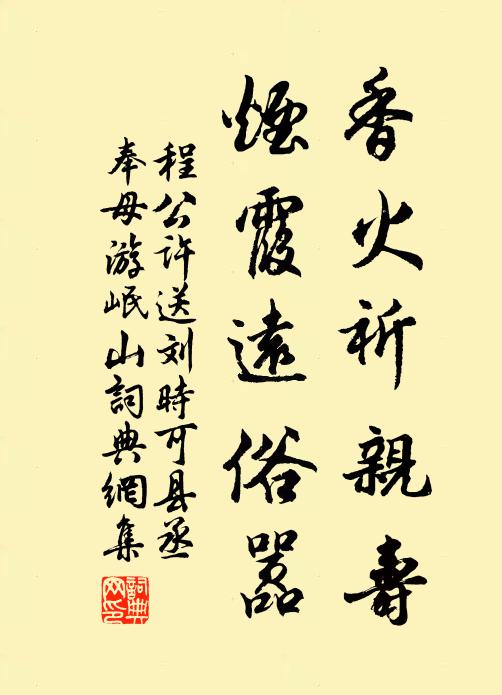 香火祈親壽
煙霞遠俗嚣
程公许送刘時可县丞
奉母游岷山詞典網集
詞典
网印